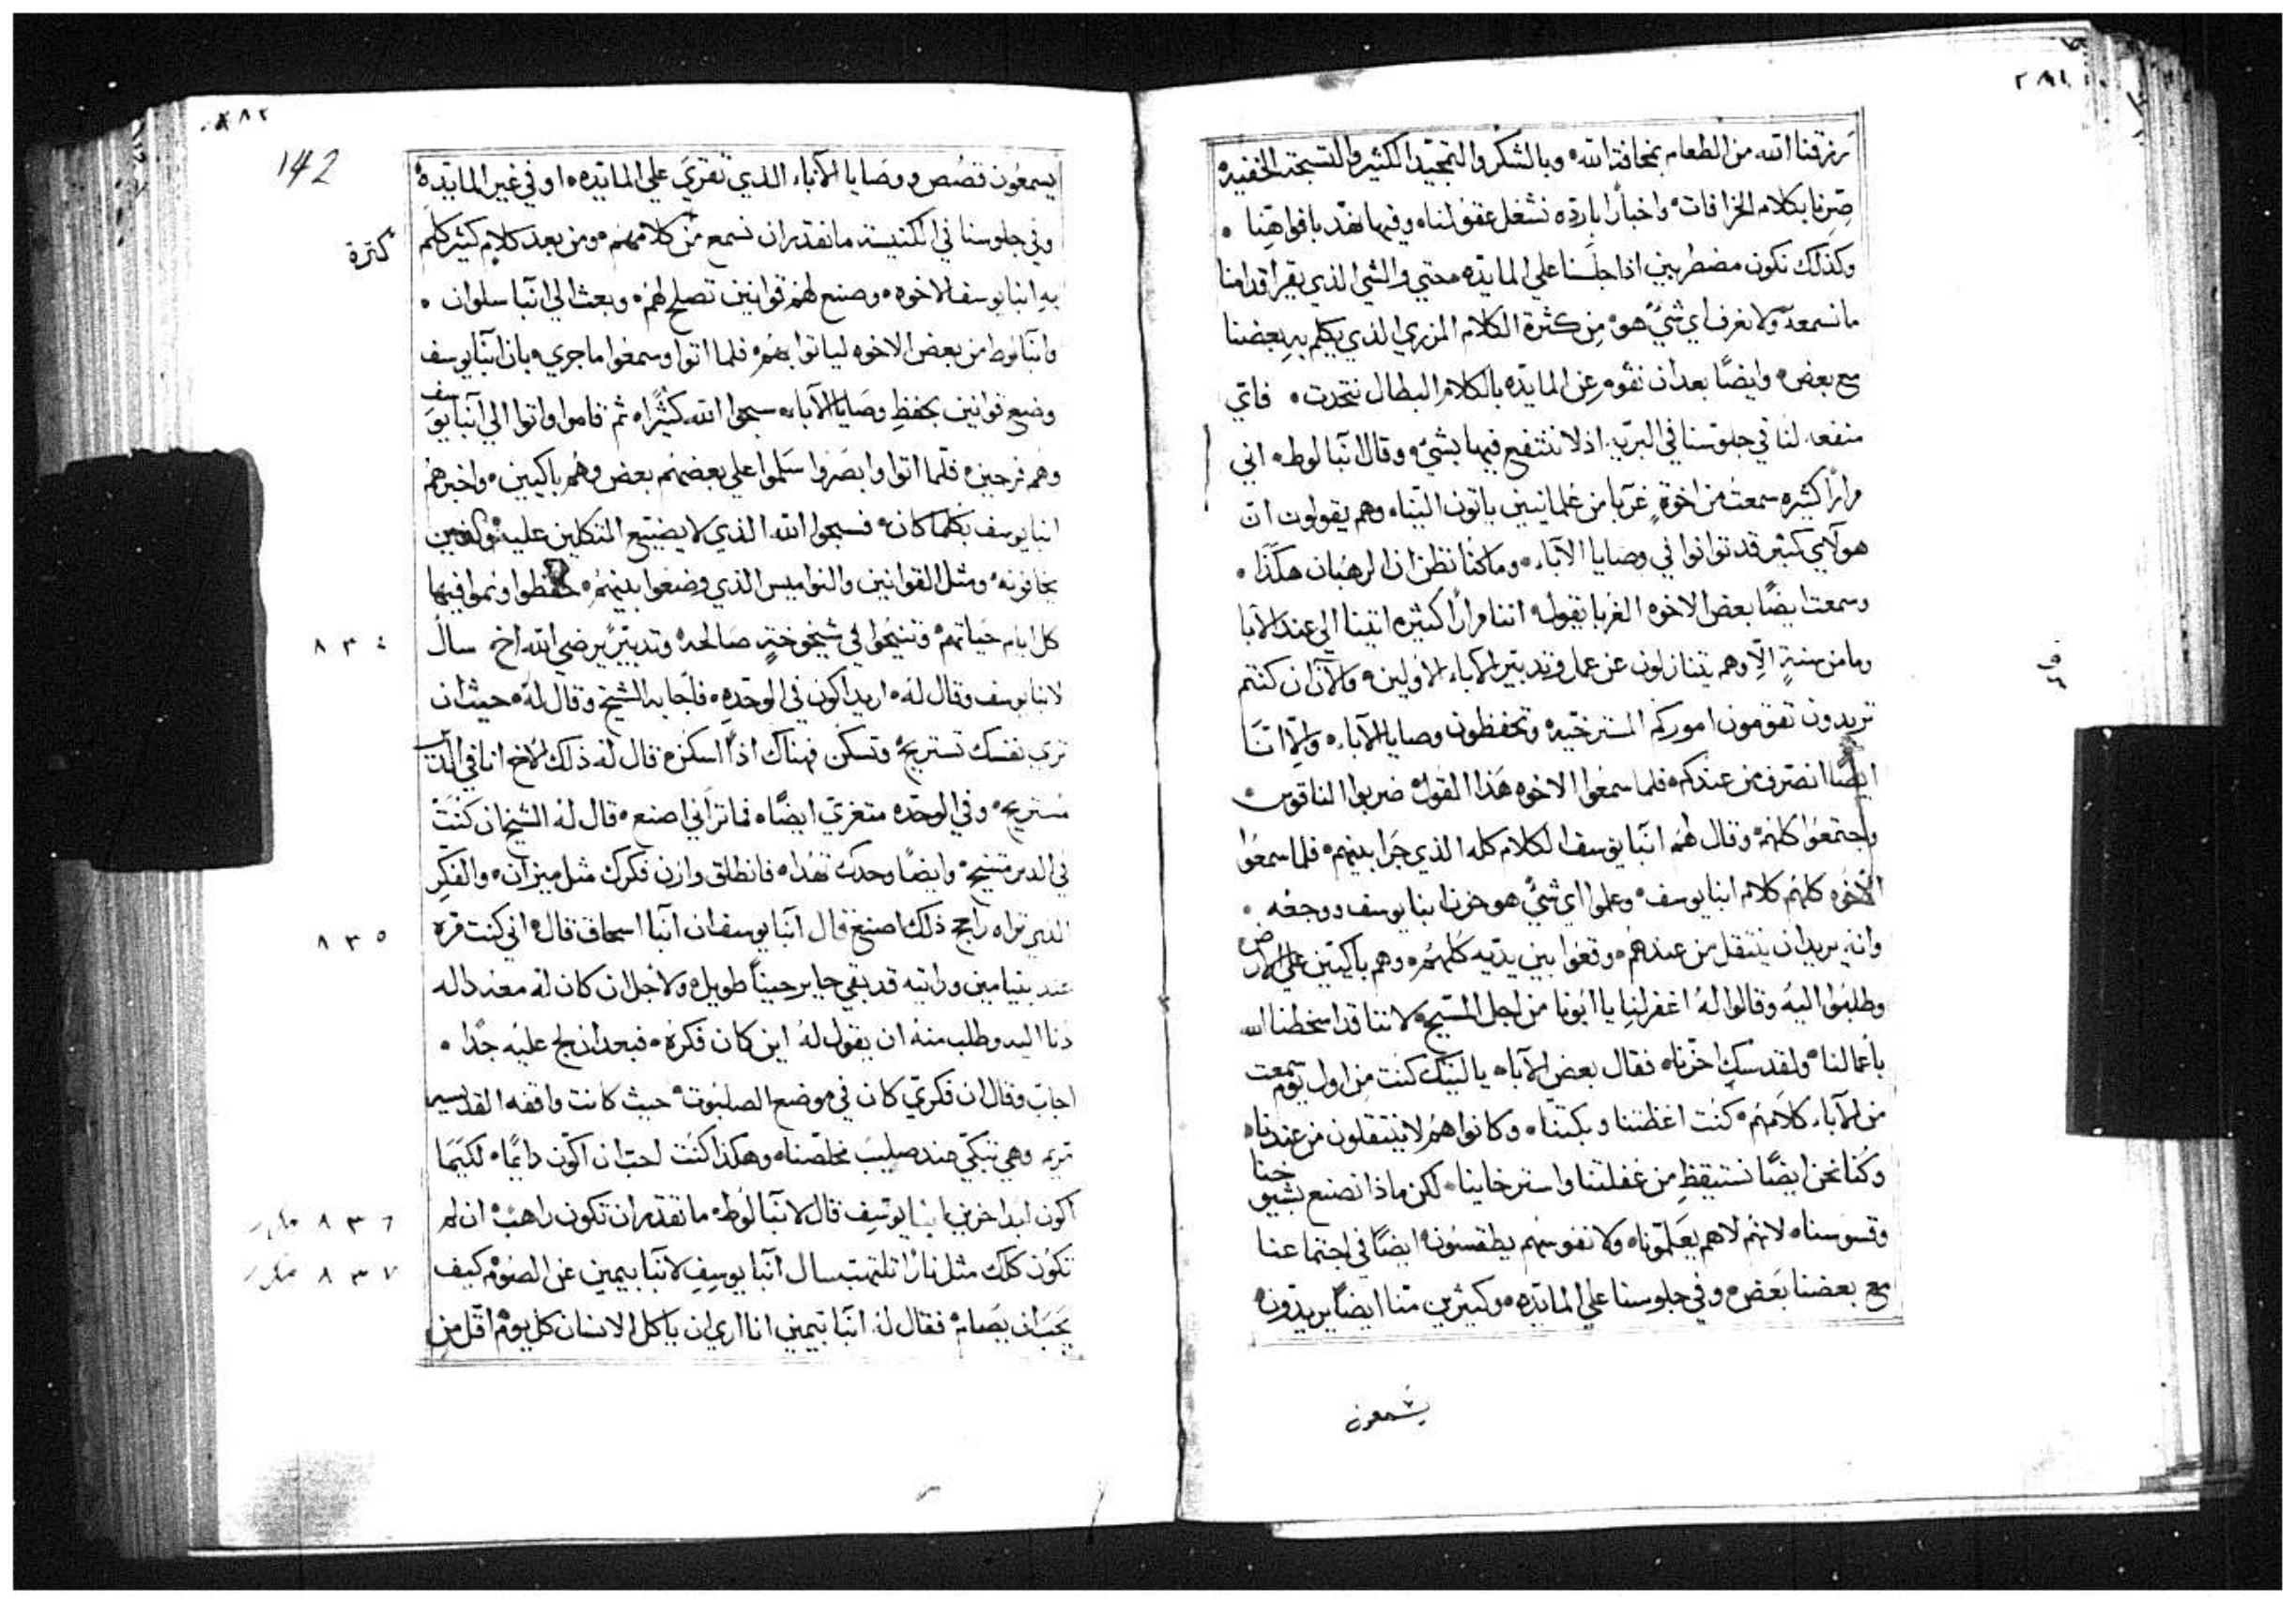 ٢٨١
يرزقنا الله من الطعام بمخافة الله وبالشكر والتمجيد الكثير والتسبحة الخفيه
صرنا بكلام الخرافات واخبارا بارده نشغل عقولنا وفيها نهد بافواهنا
وكذلك نكون مضطربين اذا جلسنا علي المايده محتي والشي الذي يقرا قدامنا
ما نسمعه ولا نعرف اي شي هو من كثرة الكلام المزري الذي يكلم به بعضنا
مع بعض وايضًا بعد ان نقوم عن المايده بالكلام البطال نتحدت فاي
منفعه لنا في جلوسنا في البريه اذ لا ننتفع فيها بشي وقال انبا لوط اني
مرارًا كثيره سمعت من اخوة غربا من علمانيين ياتون الينا وهم يقولون ان
هولاي كثير قد توانوا في وصايا الآباء وما كنا نظن ان الرهبان هكذا
وسمعت ايضًا بعض الاخوه الغربا يقول اننا مرارًا كثيره اتينا الي عند الآبا
وما من سنة الا وهم يتنازلون عن عمل وتدبير الاباء الاولين والآن ان كنتم
تريدون تقومون اموركم المسترخيه وتحفظون وصايا الآباء والا انا
ايضًا انصرف من عندكم فلما سمعوا الاخوه هذا القول ضربوا الناقوس
واجتمعوا كلهم وقال لهم انبا يوسف الكلام كله الذي جرا بينهم فلما سمعوا
الاخوه كلهم كلام انبا يوسف وعلموا اي شي هو حزن انبا يوسف ووجعه
وانه يريد ان ينتقل من عندهم وقعوا بين يديه كلهم وهم باكيين علي الارض
وطلبوا اليه وقالوا له اغفر لنا يا ابونا من اجل المسيح لاننا قد اسخطنا الله
باعمالنا ولقدسك احزنا فقال بعض الآباء يا ليتك كنت من اول يوم سمعت
من الآباء كلامهم كنت اغظتنا وبكتنا وكانوا هم لا ينتقلون من عندنا
وكنا نحن ايضًا نستيقظ من غفلتنا واسترخاينا لكن ماذا نصنع بشيوخنا
وقسوسنا لانهم لا هم يعلمونا ولا نفوسهم يطقسون ايضًا في اجتماعنا
مع بعضنا بعض وفي جلوسنا علي المايده وكثيرين منا ايضًا يريدون
يسمعون
٢٨٢
142
يسمعون قصص ووصايا الآباء الذي تقري علي المايده او في غير المايده
وفي جلوسنا في الكنيسة ما نقدر ان نسمع من كلامهم ومن بعد كلام كثير كلم
كثرة
به انبا يوسف الاخوه وصنع لهم قوانين تصلح لهم وبعث الي انبا سلوان
وانبا لوط من بعض الاخوه لياتوا بهم فلما اتوا وسمعوا ما جري بان انبا يوسف
وضع قوانين بحفظ وصايا الآباء سبحوا الله كثيرًا ثم قاموا واتوا الي انبا يوسف
وهم فرحين فلما اتوا وابصروا سلموا علي بعضهم بعض وهم باكيين واخبرهم
انبا يوسف بكلما كان فسبحوا الله الذي لا يضيع المتكلين عليه والذين
يخافونه ومثل القوانين والنواميس الذي وضعوا بينهم حفظوا ونموا فيها
كل ايام حياتهم وتنيحوا في شيخوخة صالحه وتدبير يرضي الله اخ سال
٨٣٤
لانبا يوسف وقال له اريد اكون في الوحده فاجابه الشيخ وقال له حيث ان
تري نفسك تستريح وتسكن فهناك اذًا اسكن قال له ذلك الاخ انا في الدير
مستريح وفي الوحده متعزي ايضًا فما تراني اصنع قال له الشيخ ان كنت
في الدير متنيح وايضًا وحدك تهدا فانطلق وازن فكرك مثل ميزان والفكر
الذي تراه راجح ذلك اصنع قال انبا يوسف ان انبا اسحاق قال اني كنت مره
٨٣٥
عند بنيامين ورايته قد بقي حاير حينًا طويل ولاجل ان كان له معه داله
دنا اليه وطلب منه ان يقول له اين كان فكره فبعد ان لج عليه جدًا
اجاب وقال ان فكري كان في موضع الصلبوت حيث كانت واقفه القديسه
مريم وهي تبكي عند صليب مخلصنا وهكذا كنت احب ان اكون دايمًا لكيما
اكون ابدا حزين انبا يوسف قال لانبا لوط ما تقدر ان تكون راهب ان لم
٨٣٦ مكرر
تكون كلك مثل نارًا تلتهب سال انبا يوسف لانبا بيمين عن الصوم كيف
٨٣٧ مكرر
يجب ان يصام فقال له انبا بيمين انا اري ان ياكل الانسان كل يوم اقل من